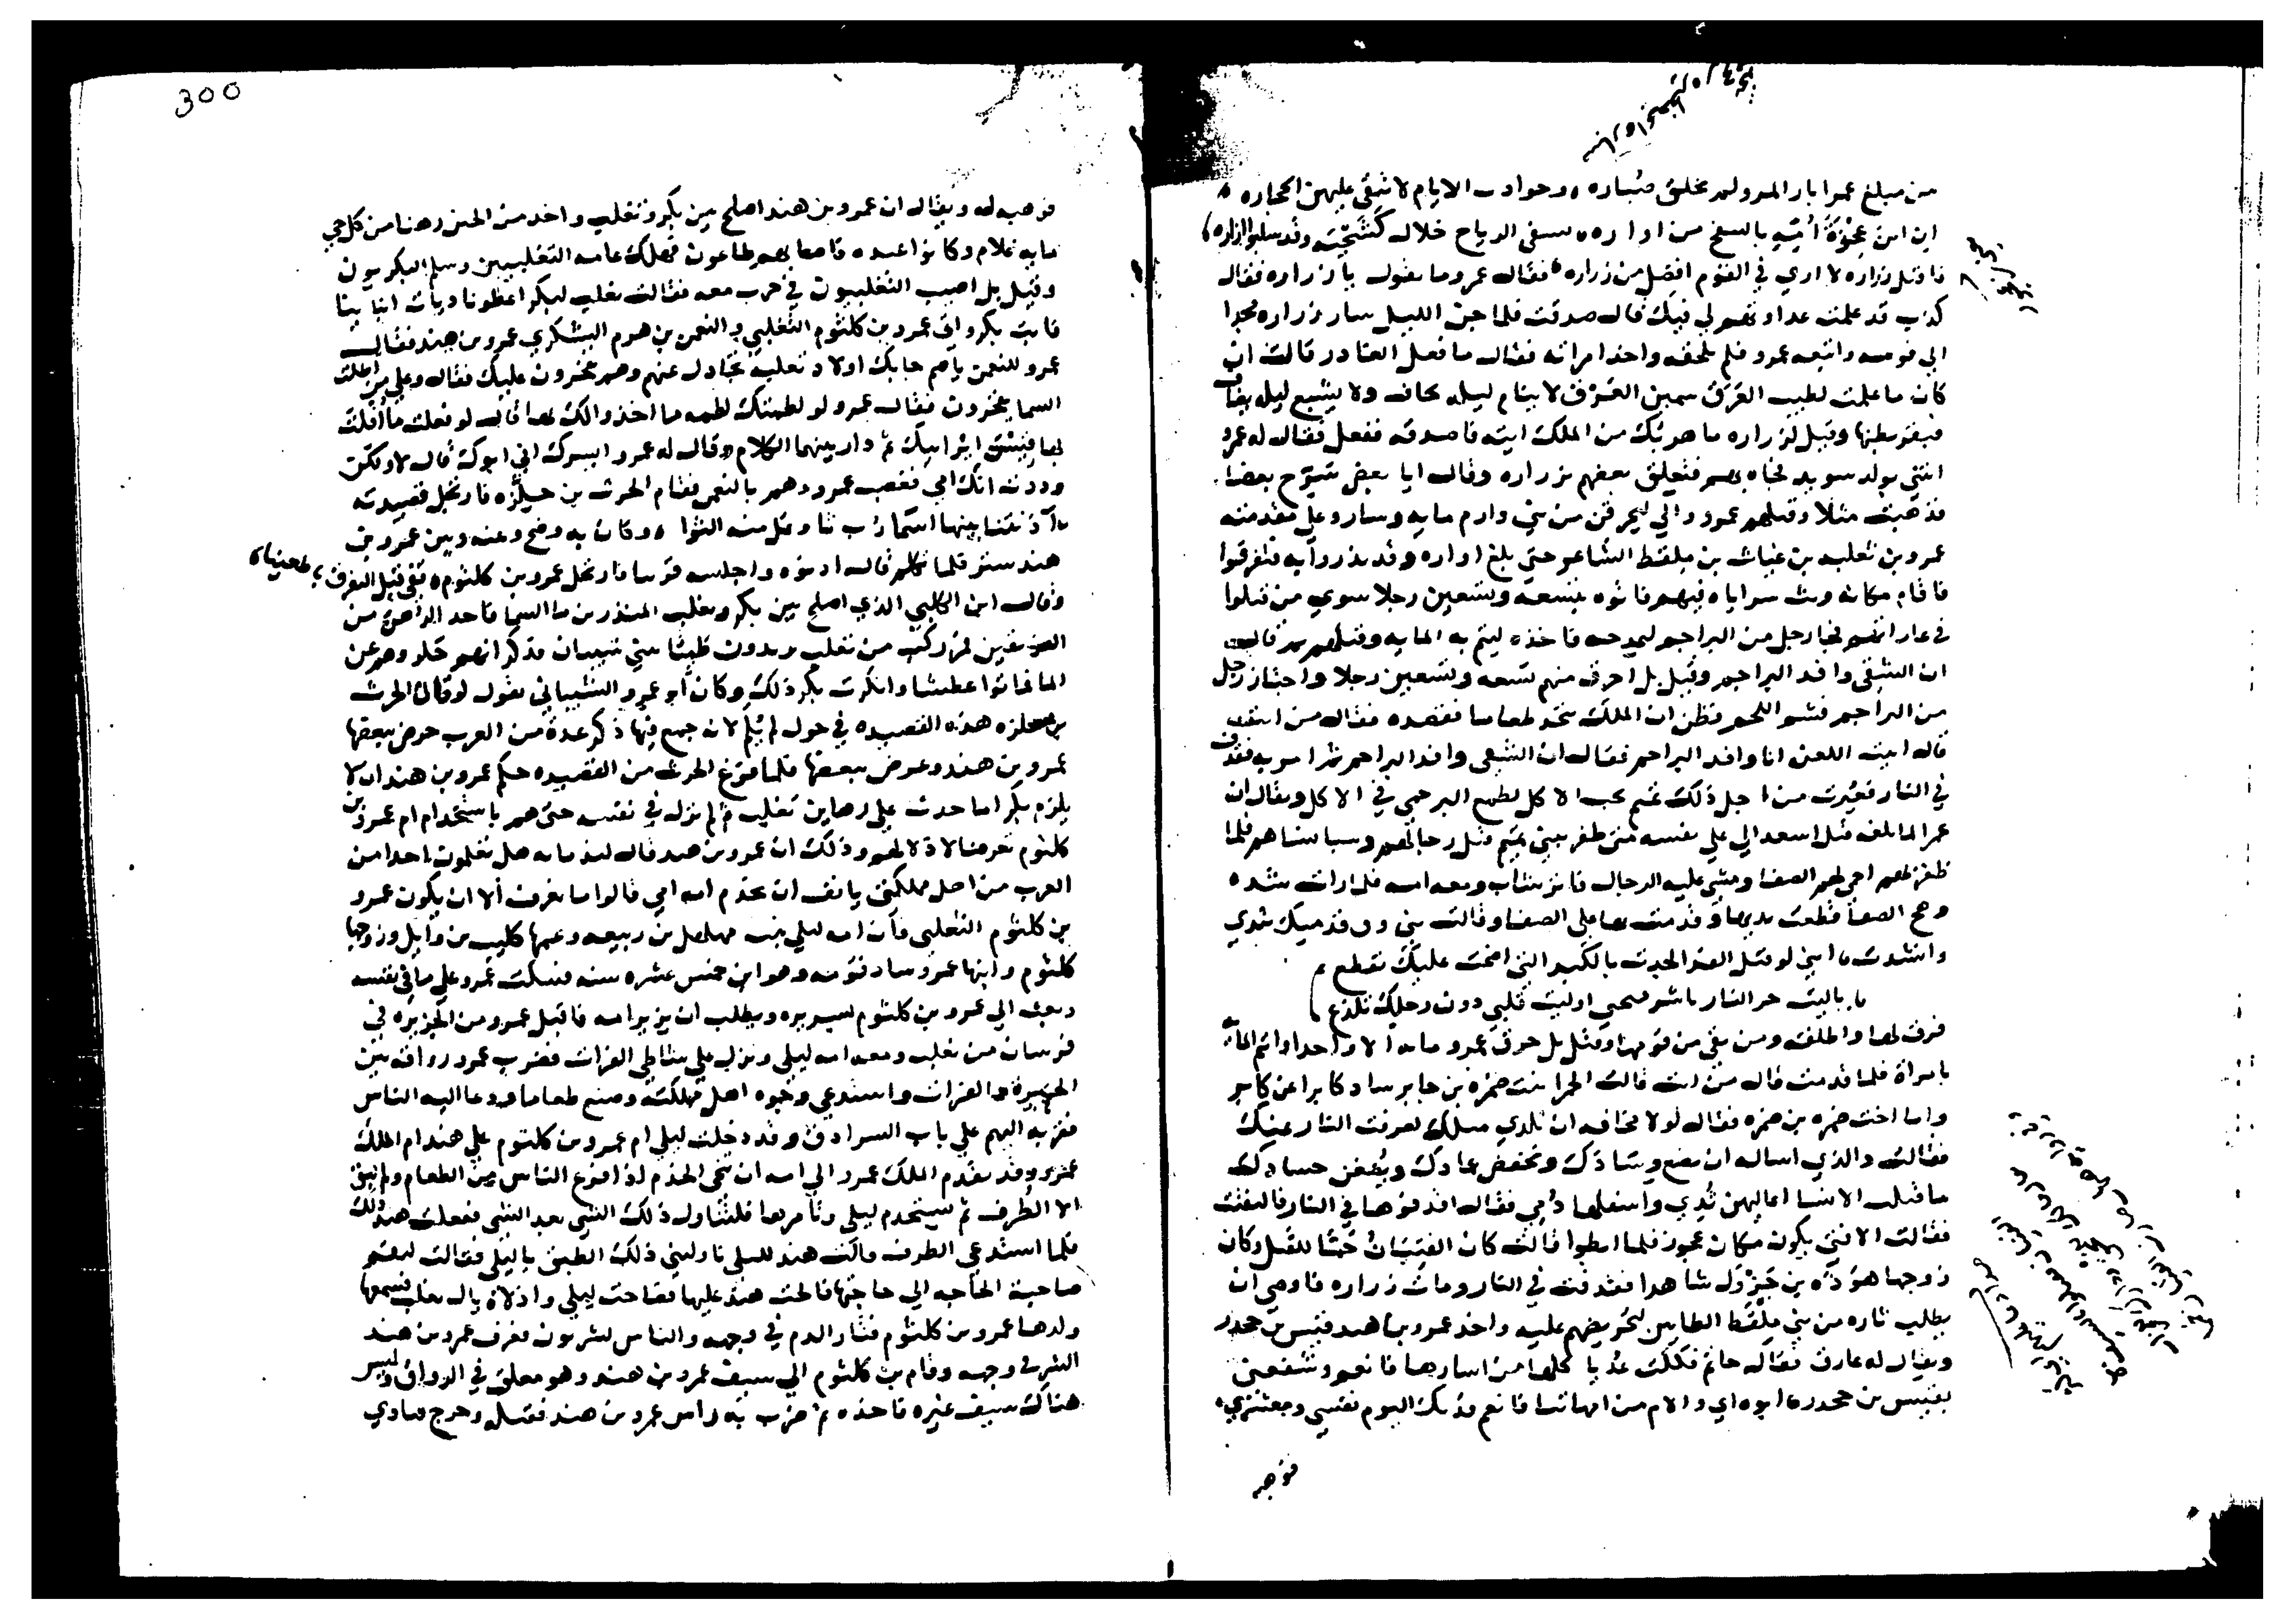 من مبلغ عمرا بان المرو لم يخلق صُباره ، وحوادث الايام لا تبقى عليهن الحجاره ،
ان ابن عِجْزَةَ أُمّه بالسفح من اواره ، تسفى الرياح خلال كَشْحَيْه وقد سلبوا ازاره
فاقتل زراره لا ارى في القوم افضل من زراره ، فقال عمرو ما تقول يا زراره فقال
كذب قد علمت عداوتهم لي فيك قال صدقت فلما جن الليل سار زراره مجدا
الى قومه واتبعه عمرو فلم يلحقه واخذ امراته فقال ما فعل الغادر قالت ان
كان ما علمت لطيب العَرَق سمين المَرَق لا ينام ليله يخاف ولا يشبع ليله يضاف
فبقر بطنها وقيل لزراره ما هربك من الملك ايته فاصدقه ففعل فقال له عمرو
ائتني بولد سويد فجاه بهم فتعلق بعضهم بزراره وقال ايا بعض سَرّح بعضا
فذهبت مثلا وقتلهم عمرو والى ليحرقن من بني دارم مايه وسار وعلى مقدمته
عمرو بن ثعلبه بن غياث بن ملقط الشاعر حتى بلغ اواره وقد نذروا به فتفرقوا
فاقام مكانه وبث سراياه فيهم فاتوه بتسعه وتسعين رجلا سوى من قتلوا
في غاراتهم فجا رجل من البراجم ليمدحه فاخذه ليتم به المايه وقتلهم ثم قال
ان الشقي وافد البراجم وقيل بل احرق منهم تسعه وتسعين رجلا واجتاز رجل
من البراجم فشم اللحم فظن ان الملك يتخذ طعاما فقصده فقال من انت
قال ابيت اللعن انا وافد البراجم فقال ان الشقي وافد البراجم ثم امر به فقذف
في النار فعيرت من اجل ذلك تميم بحب الاكل لطمع البرجمي في الاكل ويقال ان
عمرا لما بلغه قتل اسعد الى على نفسه متى ظفر ببني تميم قتل رجالهم وسبا نساهم فلما
ظفر بهم احمى لهم الصفا ومشى عليه الرجال فاتى بشاب ومعه امه فلما رات شده
وهج الصفا قطعت ثدييها وقدمت بها على الصفا وقالت بني دون قدميك ثديي
وانشدت ، ابني لو قبل الفدا لجدت بالكبد التي اضحت عليك تقطع ،
، يا ليت حر النار باشر مهجتي او ليت قلبي دون رجلك تلذع
فرق لها واطلقه ومن بقي من قومها وقيل بل حرق عمرو مايه الا واحدا واتم المايه
بامراة فلما قدمت قال من انت قالت الحمرا بنت ضمره بن جابر ساد كابرا عن كابر
وانا اخت ضمره بن ضمره فقال لولا مخافه ان تلدي مثلك لصرفت النار عنك
فقالت والذي اساله ان يضع وسادك ويخفض عمادك ويُفقن حسادك
ما قتلت الا نسا اعاليهن ثُدي واسفلها دُمي فقال اقذفوها في النار فالتفتت
فقالت الا فتى يكون مكان عجوز فلما ابطوا قالت كان الفتيان حمما للقتل وكان
زوجها هوذه بن جَرْوَل شاهدا فقذفت في النار ومات زراره فاوصى ان
يطلب ثاره من بني مِلْقَط الطايين لتحريضهم عليه واخذ عمرو بن هند قيس بن جحدر
ويقال له عارق فقال حاتم فككت عديا كلها من اسارها فانعم وشفعني
بقيس بن جحدر ، ابوه ابي والام من امهاتنا فانعم فدتك اليوم نفسي ومعشري ،
فوهبه
300
فوهبه له ويقال ان عمرو بن هند اصلح بين بكر وتغلب واخذ من الحيين رهنا من كل حي
مايه غلام وكانوا عنده فاصابهم طاعون فهلك عامه التغلبيين وسلم البكريون
وقيل بل اصيب التغلبيون في حرب معه فقالت تغلب لبكر اعطونا ديات ابناينا
فابت بكر واتى عمرو بن كلثوم التغلبي والنعمن بن هرم اليشكري عمرو بن هند فقال
عمرو للنعمن يا اصم جابك اولاد ثعلبه تجادل عنهم وهم يفخرون عليك فقال وعلى من اظلت
السما يفخرون فقال عمرو لو لطمتك لطمه ما اخذوا لك بها قال لو فعلت ما افلت
بها قيس اير ابيك ثم دار بينهما الكلام وقال له عمرو ايسرك اني ابوك قال لا ولكن
وددت انك امي فغضب عمرو وهم بالنعمن فقام الحرث بن حِلِّزه فارتجل قصيدته
، آذنتنا ببينها اسما ، رُب ثاو يمل منه الثوا ، وكان به وضح وعنه وبين عمرو بن
هند ستر فلما تكلم قال ادنوه واجلسه قريبا فارتجل عمرو بن كلثوم ، قفي قبل التفرق يا ظعينا ،
وقال ابن الكلبي الذي اصلح بين بكر وتغلب المنذر بن ما السما فاخذ الراهن من
الفريقين فمر ركب من تغلب يريدون طيئا ببني شيبان فذكر انهم خلوهم عن
الما فماتوا عطشا وانكرت بكر ذلك وكان أبو عمرو الشيباني يقول لو قال الحرث
بن حلزه هذه القصيده في حول لم يُلَم لانه جمع فيها ذكر عدة من العرب حرض ببعضها
عمرو بن هند وعرض ببعضها فلما فرغ الحرث من القصيده حكم عمرو بن هند ان لا
يلزم بكرا ما حدث على رهاين تغلب ثم لم يزل في نفسه حتى هم باستخدام ام عمرو بن
كلثوم تعرضا لاذلالهم وذلك ان عمرو بن هند قال لندمايه هل تعلمون احدا من
العرب من اهل مملكتي يانف ان تخدم امه امي قالوا ما نعرفه الا ان يكون عمرو
بن كلثوم التغلبي فان امه ليلى بنت مهلهل بن ربيعه وعمها كليب بن وايل وزوجها
كلثوم وابنها عمرو ساد قومه وهو ابن خمس عشره سنه فسكت عمرو على ما في نفسه
وبعث الى عمرو بن كلثوم يستزيره ويطلب ان يزير امه فاقبل عمرو من الجزيره في
فرسان من تغلب ومعه امه ليلى ونزل على شاطي الفرات فضرب عمرو رواقه بين
الحيرة والفرات واستدعى وجوه اهل مملكته وصنع طعاما ودعا اليه الناس
فقربه اليهم على باب السرادق وقد دخلت ليلى ام عمرو بن كلثوم على هند ام الملك
عمرو وقد تقدم الملك عمرو الى امه ان تنحي الخدم اذا فرغ الناس من الطعام ولم يبق
الا الطُرف ثم تستخدم ليلى وتامرها فلتناول ذلك الشي بعد الشي ففعلت هند ذلك
فلما استدعي الطرف قالت هند لليلى ناوليني ذلك الطبق يا ليلى فقالت لتقم
صاحبة الحاجه الى حاجتها فالحت هند عليها فصاحت ليلى واذلاه يال تغلب فسمعها
ولدها عمرو بن كلثوم فثار الدم في وجهه والناس يشربون فعرف عمرو بن هند
الشر في وجهه وقام بن كلثوم الى سيف عمرو بن هند وهو معلق في الرواق وليس
هناك سيف غيره فاخذه ثم ضرب به راس عمرو بن هند فقتله وخرج فنادى